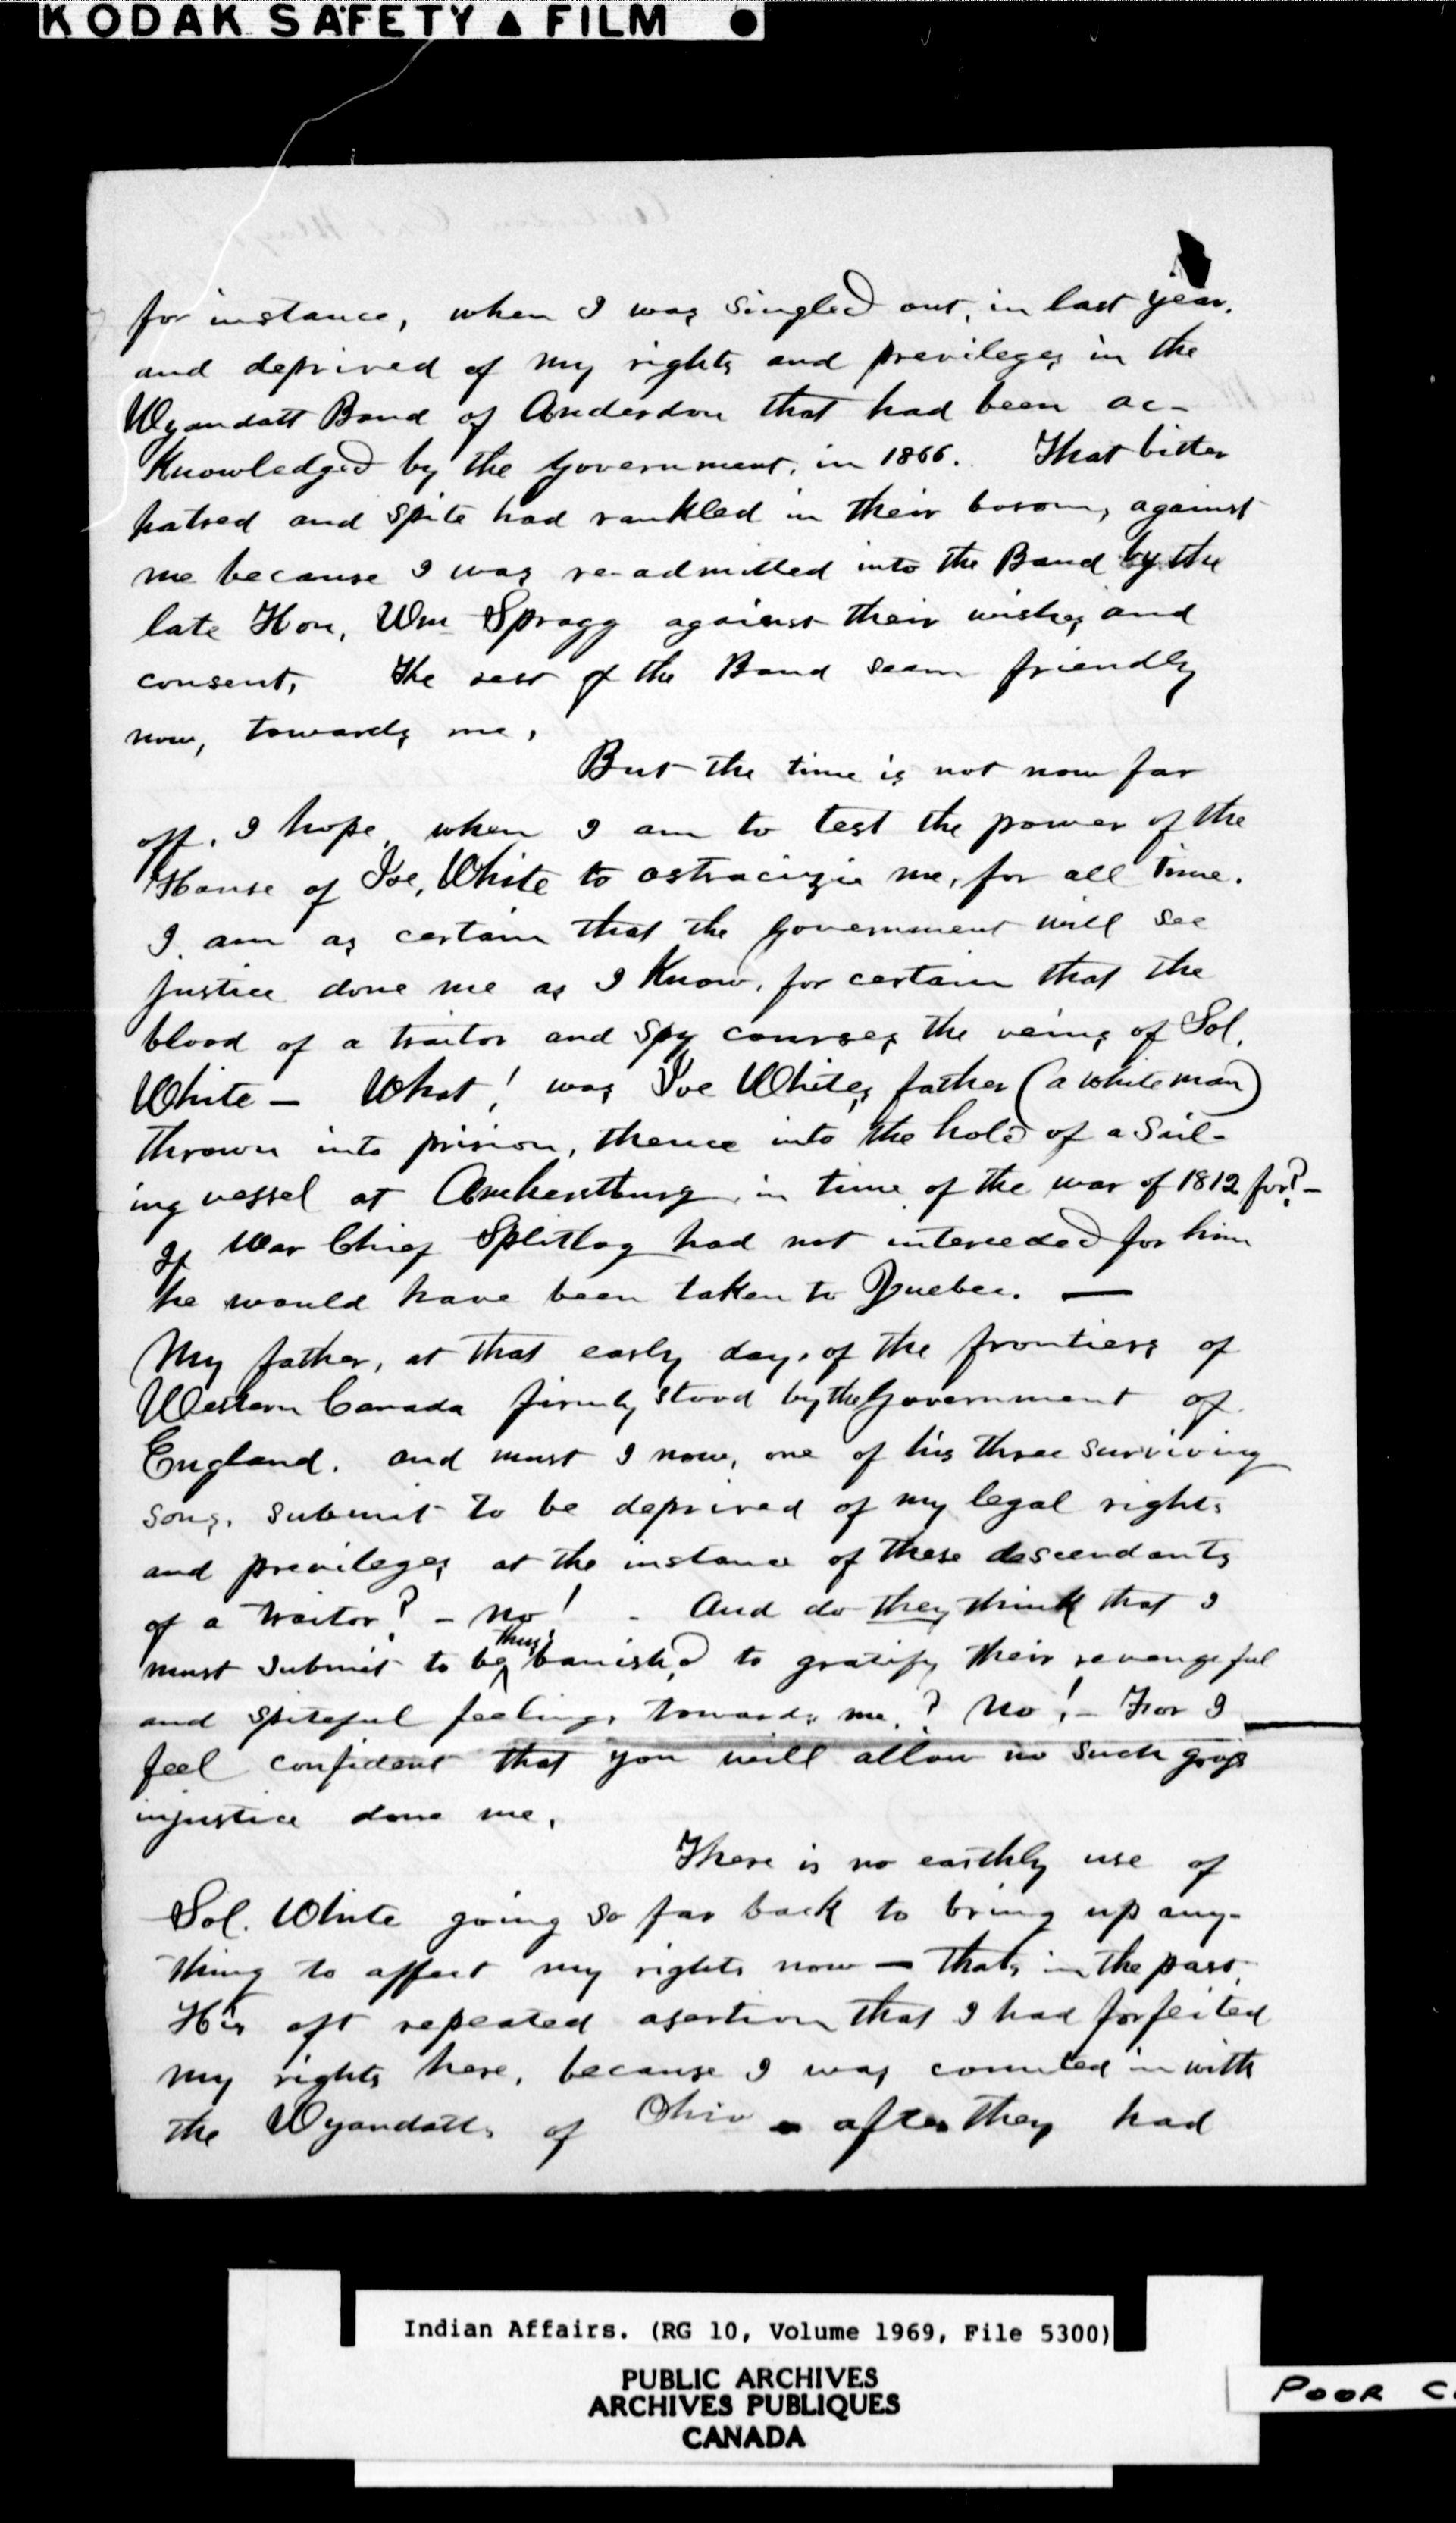 KODAK SAFETY ▲ FILM ●
for instance, when I was singled out, in last year,
and deprived of my rights and previleges in the
Wyandott Band of Anderdon that had been ac-
knowledged by the Government, in 1866. That bitter
hatred and spite had rankled in their bosoms, against
me because I was re-admitted into the Band by the
late Hon. Wm Spragg against their wishes and
consent, The rest of the Band seem friendly
now, towards me,
But the time is not now far
off, I hope, when I am to test the power of the
House of Joe, White to ostracizie me, for all time.
I am as certain that the Government will see
justice done me as I Know, for certain that the
blood of a traitor and spy courses the veins of Sol,
White — What! was Joe Whites father (a white man)
thrown into prision, thence into the hold of a Sail-
ing vessel at Amherstburg, in time of the war of 1812 for? —
If War Chief Splitlog had not interceded for him
he would have been taken to Quebec. —
My father, at that early day, of the frontiers of
Western Canada firmly stood by the Government of
England. and must I now, one of his three surviving
sons, submit to be deprived of my legal rights
and previleges at the instance of these descendants
of a traitor? — No! - And do they think that I
must submit to be thus banished to gratify their revengeful
and spiteful feelings towards me? No! — For I
feel confident that you will allow no such gross
injustice done me,
There is no earthly use of
Sol. White going so far back to bring up any-
thing to affect my rights now — thats in the past,
His oft repeated asertion that I had forfeited
my rights here, because I was counted in with
the Wyandotts of Ohio - after they had
Indian Affairs. (RG 10, Volume 1969, File 5300)
PUBLIC ARCHIVES
ARCHIVES PUBLIQUES
CANADA
POOR C